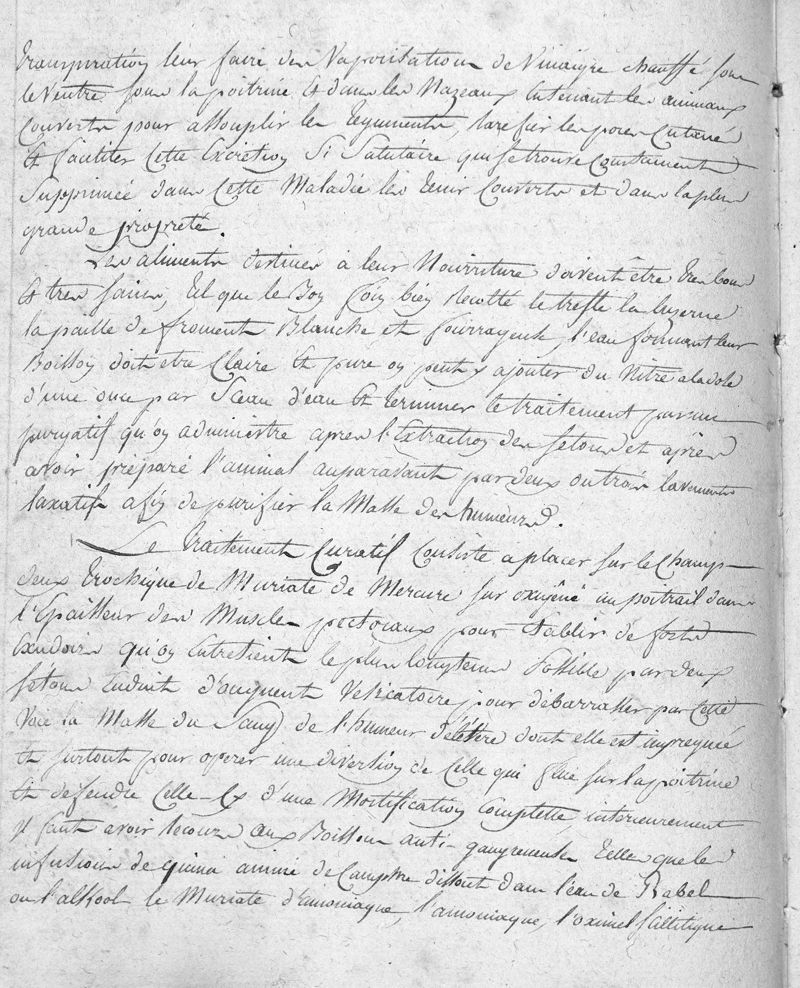 transpiration leur faire des vaporisations de Vinaigre chauffé sous
le Ventre sous la poitrine et dans les Nazeaux en tenant les animaux
couverts pour assouplir les teguments, rarefier les pores cutané
et faciliter cette Excretion si salutaire qui se trouve constament
supprimée dans cette Maladie les tenir couverts et dans la plus
grande propreté.
Les aliments destinés à leur Nourriture doivent être tres bons
et tres sains, tel que le Bon foin bien recolté le trefle la luzerne
la paille de froment Blanche et fourrageuse, l'eau formant leur
Boisson doit etre Claire et pure on peut y ajouter du Nitre a la dose
d'une once par Sceau d'eau et terminer le traitement par un
purgatif qu'on administre apres l'Extraction des setons et après
avoir préparé l'animal auparavant par deux ou trois lavements
laxatifs afin de purifier la Masse des humeurs.
Le traitement Curatif Consiste a placer sur le Champ
deux trochique de Muriate de Mercure sur oxigéné au poitrail dans
l'Epaisseur des Muscles pectoraux pour etablir de forts
Exutoires qu'on Entretient le plus longtems Possible par deux
sétons Enduit d'onguent Vesicatoire, pour débarrasser par cette
Voie la Masse du Sang de l'humeur délétère dont elle est impregnée
et surtout pour operer une diversion de celle qui flue sur la poitrine
et defendre Celle-Cy d'une Mortification Complette, interieurement
il faut avoir recours aux Boissons anti-gangreneuses telles que les
infusions de quina animé de Camphre dissout dans l'eau de Rabel
ou l'alkool le Muriate d'amoniaque, l'amoniaque, l'oximel scillitique